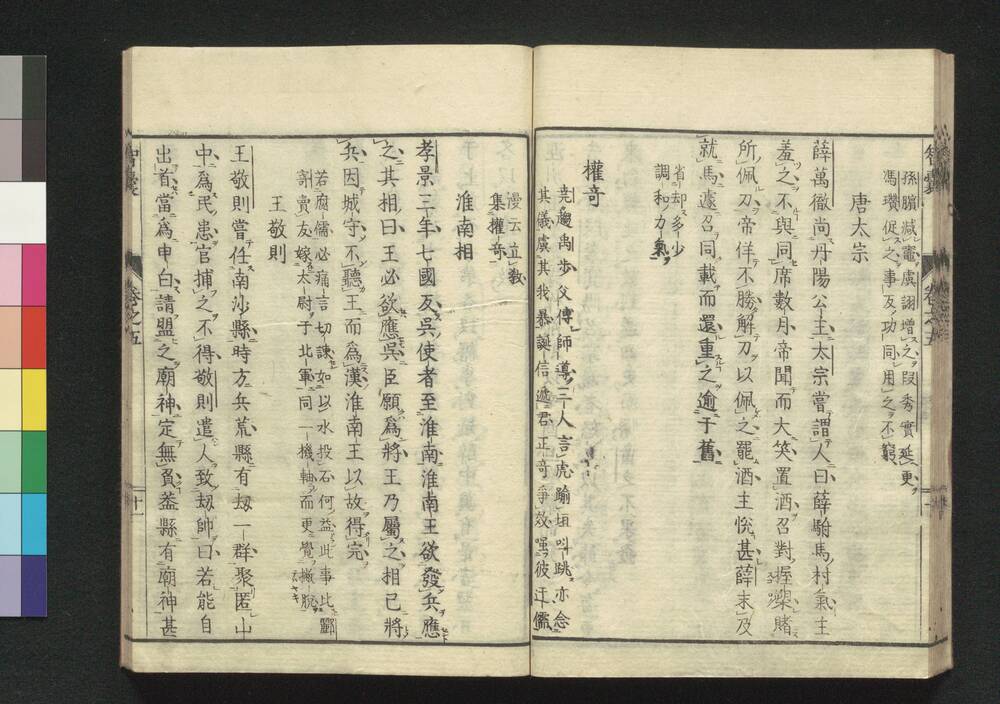 孫臏減竈虞詡増之段秀實延更
馮瓚促之事反功同用之不窮
唐太宗
薛萬徹尚丹陽公主太宗嘗謂人曰薛駙馬村氣主
羞之不與同席數月帝聞而大笑置酒召對握槊賭
所佩刀帝佯不勝解刀以佩之罷酒主悅甚薛未及
就馬遽召同載而還重之逾于舊
省却多少
調和力氣
權奇
堯趨禹步父傳師導三人言虎踰垣叫跳亦念
其儀虞其我暴誕信遞君正奇爭效嗤彼迂儒
漫云立教
集權奇
淮南相
孝景三年七國反吳使者至淮南淮南王欲發兵應
之其相曰王必欲應吳臣願爲將王乃屬之相已將
兵因城守不聽王而爲漢淮南王以故得完
若腐儒必痛言切諫如以水投石何益此事此酈
寄賣友嫁太尉于北軍同一機軸而更覺撇脫
王敬則
王敬則嘗任南沙縣時方兵荒縣有刼一群聚匿山
中爲民患官捕之不得敬則遣人致刼帥曰若能自
出首當爲申白請盟之廟神定無負盖縣有廟神甚
智囊
卷之五
十一